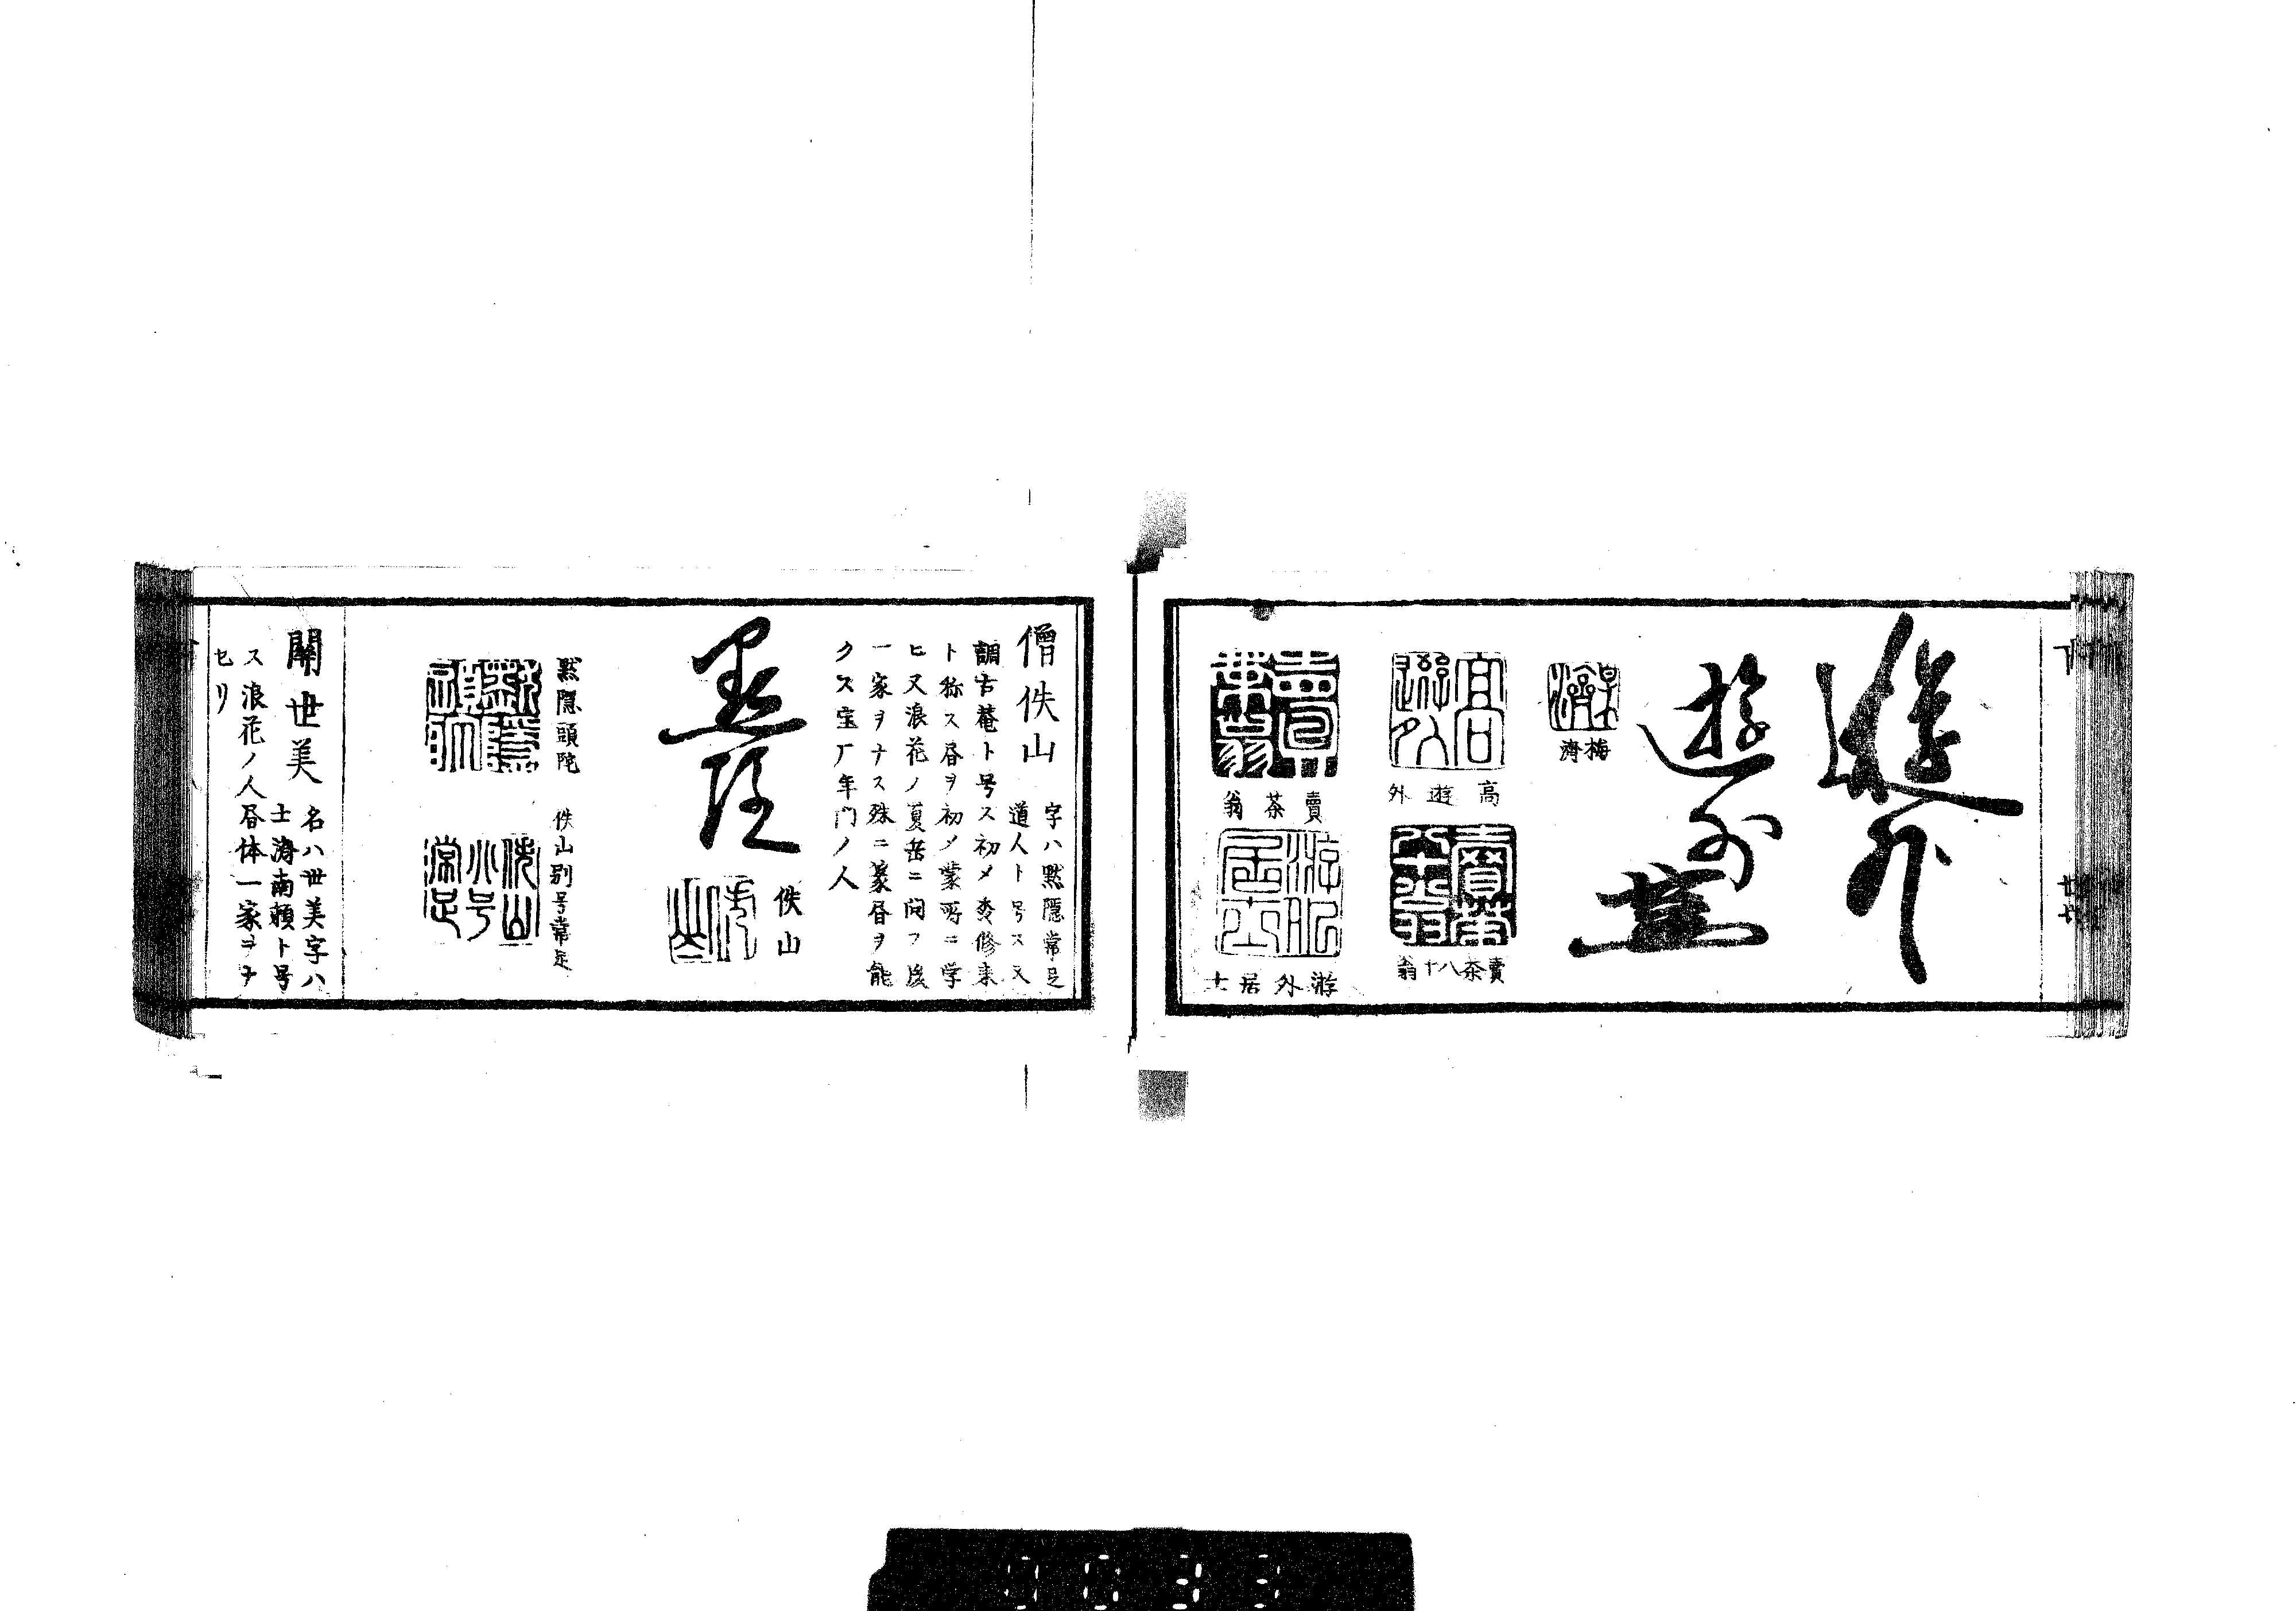 遊外
遊外
梅濟
高遊外
賣茶八十翁
賣茶翁
游外居士
僧佚山
字ハ黙隠常足
道人ト号ス又
調古菴ト号ス初メ袞修来
ト称ス昏ヲ初メ蒙所ニ学
ヒ又浪花ノ夏岳ニ問フ後
一家ヲナス殊ニ篆昏ヲ能
クス宝厂年門ノ人
黙隠
佚山
黙隠頭陀
佚山別号常足
關世美
名ハ世美字ハ
士濟南頼ト号
ス浪花ノ人昏体一家ヲナ
セリ